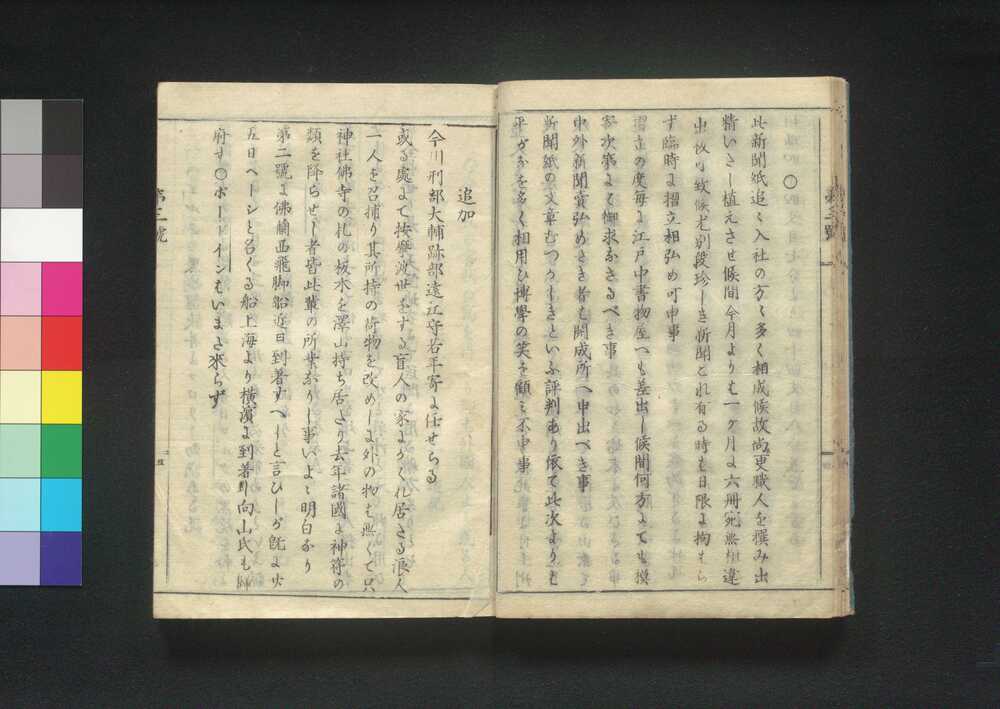 ○
此新聞紙追〻入社の方〻多く相成候故尚更職人を撰み出
精いさし植えさせ候間今月よりも一ケ月よ六冊宛無相違
出板可致候尤別段珍しき新聞これ有る時も日限よ拘もら
ず臨時よ摺立相弘め可申事
摺立の度毎よ江戸中書物屋へも差出し候間何方よても摸
寄次第よ御求なさるべき事
中外新聞賣弘めさき者も開成所へ申出べき事
新聞紙の文章むつかしきといふ評判あり依て此次よりも
平がなを多く相用ひ博學の笑を顧ミ不申事
追加
今川刑部大輔跡部遠江守若年寄よ任せらる
或る處よて按摩渡世をする盲人の家よかくれ居さる浪人
一人を召捕り其所持の荷物を改めしよ外の物も無くて只
神社佛寺の札の板木を澤山持ち居さり去年諸國よ神符の
類を降らせし者皆此輩の所業なりし事いよ〻明白なり
第二號よ佛蘭西飛脚船近日到着すべしと言ひしが既よ火
五日ヘーシと名くる船上海より横濱よ到着り向山氏も歸
府す○ボードインもいまさ來らず
第三號